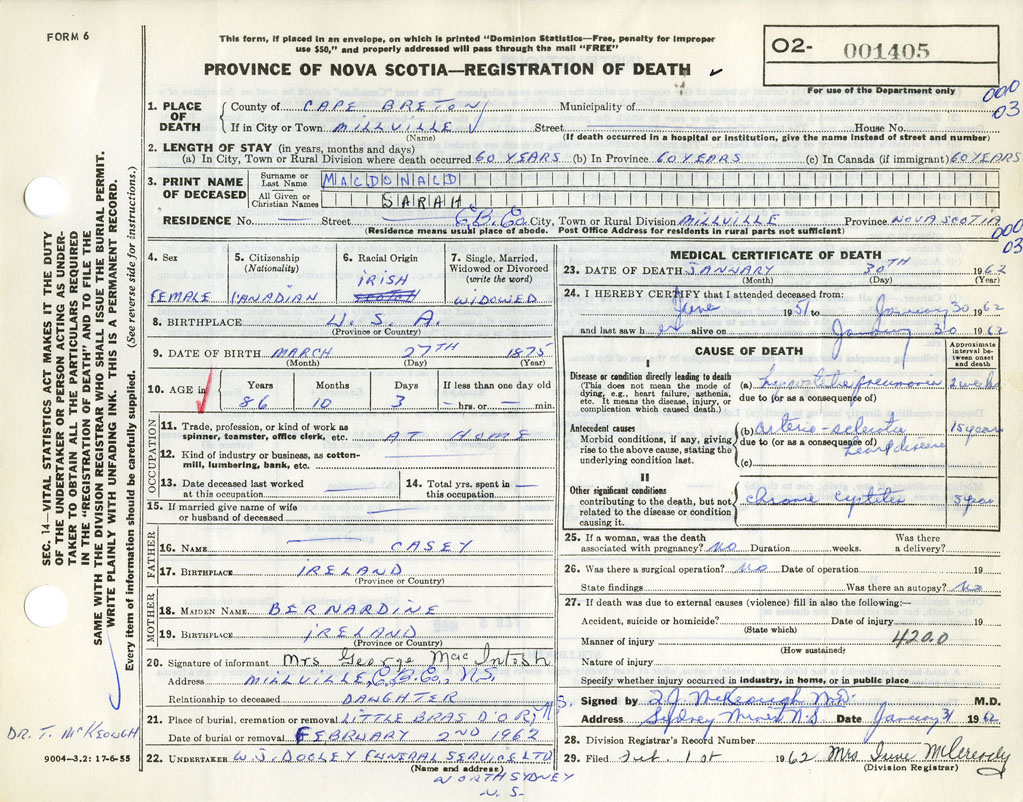 FORM 6
This form, if placed in an envelope, on which is printed "Dominion Statistics—Free, penalty for improper
use $50," and properly addressed will pass through the mail "FREE"
PROVINCE OF NOVA SCOTIA—REGISTRATION OF DEATH
O2- 001405
For use of the Department only
000
03
1. PLACE OF DEATH
County of CAPE BRETON Municipality of
If in City or Town MILLVILLE Street House No.
(Name) (If death occurred in a hospital or institution, give the name instead of street and number)
2. LENGTH OF STAY (in years, months and days)
(a) In City, Town or Rural Division where death occurred 60 YEARS (b) In Province 60 YEARS (c) In Canada (if immigrant) 60 YEARS
3. PRINT NAME OF DECEASED
Surname or Last Name MACDONALD
All Given or Christian Names SARAH
RESIDENCE No. — Street — C.B. Co. City, Town or Rural Division MILLVILLE Province NOVA SCOTIA
(Residence means usual place of abode. Post Office Address for residents in rural parts not sufficient)
000
03
4. Sex
FEMALE
5. Citizenship
(Nationality)
CANADIAN
6. Racial Origin
IRISH
SCOTCH
7. Single, Married,
Widowed or Divorced
(write the word)
WIDOWED
8. BIRTHPLACE U. S. A.
(Province or Country)
9. DATE OF BIRTH MARCH 27TH 1875
(Month) (Day) (Year)
10. AGE in
Years Months Days If less than one day old
86 10 3 — hrs. or — min.
OCCUPATION
11. Trade, profession, or kind of work as
spinner, teamster, office clerk, etc. AT HOME
12. Kind of industry or business, as cotton-
mill, lumbering, bank, etc. —
13. Date deceased last worked
at this occupation —
14. Total yrs. spent in
this occupation —
15. If married give name of wife
or husband of deceased —
FATHER
16. NAME — CASEY
17. BIRTHPLACE IRELAND
(Province or Country)
MOTHER
18. MAIDEN NAME BERNARDINE
19. BIRTHPLACE IRELAND
(Province or Country)
20. Signature of informant Mrs George MacIntosh
Address MILLVILLE, C.B. Co., N.S.
Relationship to deceased DAUGHTER
21. Place of burial, cremation or removal LITTLE BRAS D'OR
Date of burial or removal FEBRUARY 2ND 1962
22. UNDERTAKER W. J. DOOLEY FUNERAL SERVICE LTD
(Name and address)
NORTH SYDNEY
N. S.
MEDICAL CERTIFICATE OF DEATH
23. DATE OF DEATH JANNARY 30TH 1962
(Month) (Day) (Year)
24. I HEREBY CERTIFY that I attended deceased from:
June 1951 to January 30 1962
and last saw her alive on January 30 1962
CAUSE OF DEATH
Approximate
interval be-
tween onset
and death
I
Disease or condition directly leading to death
(This does not mean the mode of
dying, e.g., heart failure, asthenia,
etc. It means the disease, injury, or
complication which caused death.)
(a) hypostatic pneumonia 2 weeks
due to (or as a consequence of)
Antecedent causes
Morbid conditions, if any, giving
rise to the above cause, stating the
underlying condition last.
(b) arterio-sclerotic 15 years
due to (or as a consequence of)
heart disease
(c)
II
Other significant conditions
contributing to the death, but not
related to the disease or condition
causing it.
chronic cystitis 5 years
25. If a woman, was the death
associated with pregnancy? NO Duration weeks. Was there
a delivery?
26. Was there a surgical operation? NO Date of operation 19
State findings Was there an autopsy? No
27. If death was due to external causes (violence) fill in also the following:—
Accident, suicide or homicide? Date of injury 19
(State which)
Manner of injury 4200
(How sustained)
Nature of injury
Specify whether injury occurred in industry, in home, or in public place
Signed by T.J. McKeough M.D. M.D.
Address Sydney Mines N.S. Date January 31 1962
28. Division Registrar's Record Number
29. Filed Feb. 1st 1962
(Division Registrar)
SEC. 14—VITAL STATISTICS ACT MAKES IT THE DUTY
OF THE UNDERTAKER OR PERSON ACTING AS UNDER-
TAKER TO OBTAIN ALL THE PARTICULARS REQUIRED
IN THE "REGISTRATION OF DEATH" AND TO FILE THE
SAME WITH THE DIVISION REGISTRAR WHO SHALL ISSUE THE BURIAL PERMIT.
WRITE PLAINLY WITH UNFADING INK. THIS IS A PERMANENT RECORD.
Every item of information should be carefully supplied. (See reverse side for instructions.)
DR. T. McKEOUGH
9004—3.2: 17-6-55